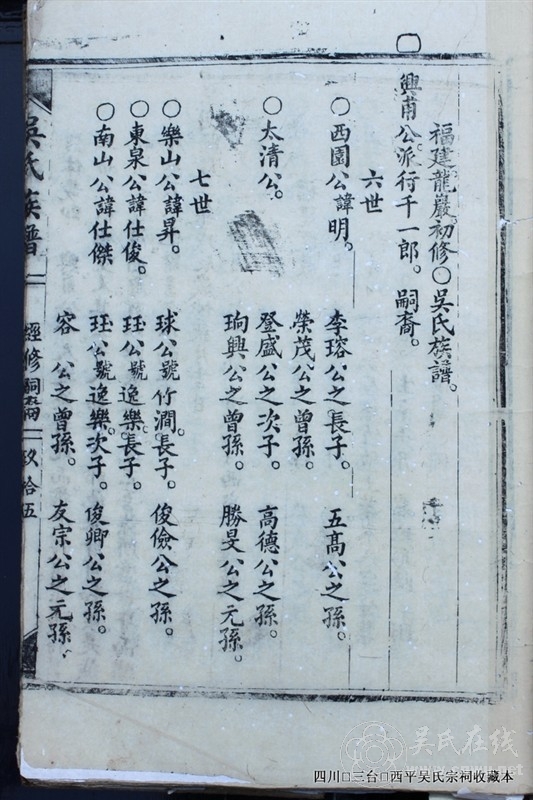 福建龍巖初修〇吳氏族譜。
興甫公。派行千一郎。嗣裔。
六世
〇西園公諱明。 李瑢公之長子。 五高公之孫。
榮茂公之曾孫。
〇太清公。 登盛公之次子。 高德公之孫。
珦興公之曾孫。 勝旻公之元孫。
七世
〇樂山公諱昇。 球公號竹澗。長子。 俊儉公之孫。
〇東泉公諱仕俊。 珏公號逸樂。長子。
〇南山公諱仕傑 珏公號逸樂次子。 俊卿公之孫。
容 公之曾孫。 友宗公之元孫
吳氏族譜
經修嗣裔
玖拾五
吳氏在线
www.cnwu.net
四川□三台□西平吴氏宗祠收藏本